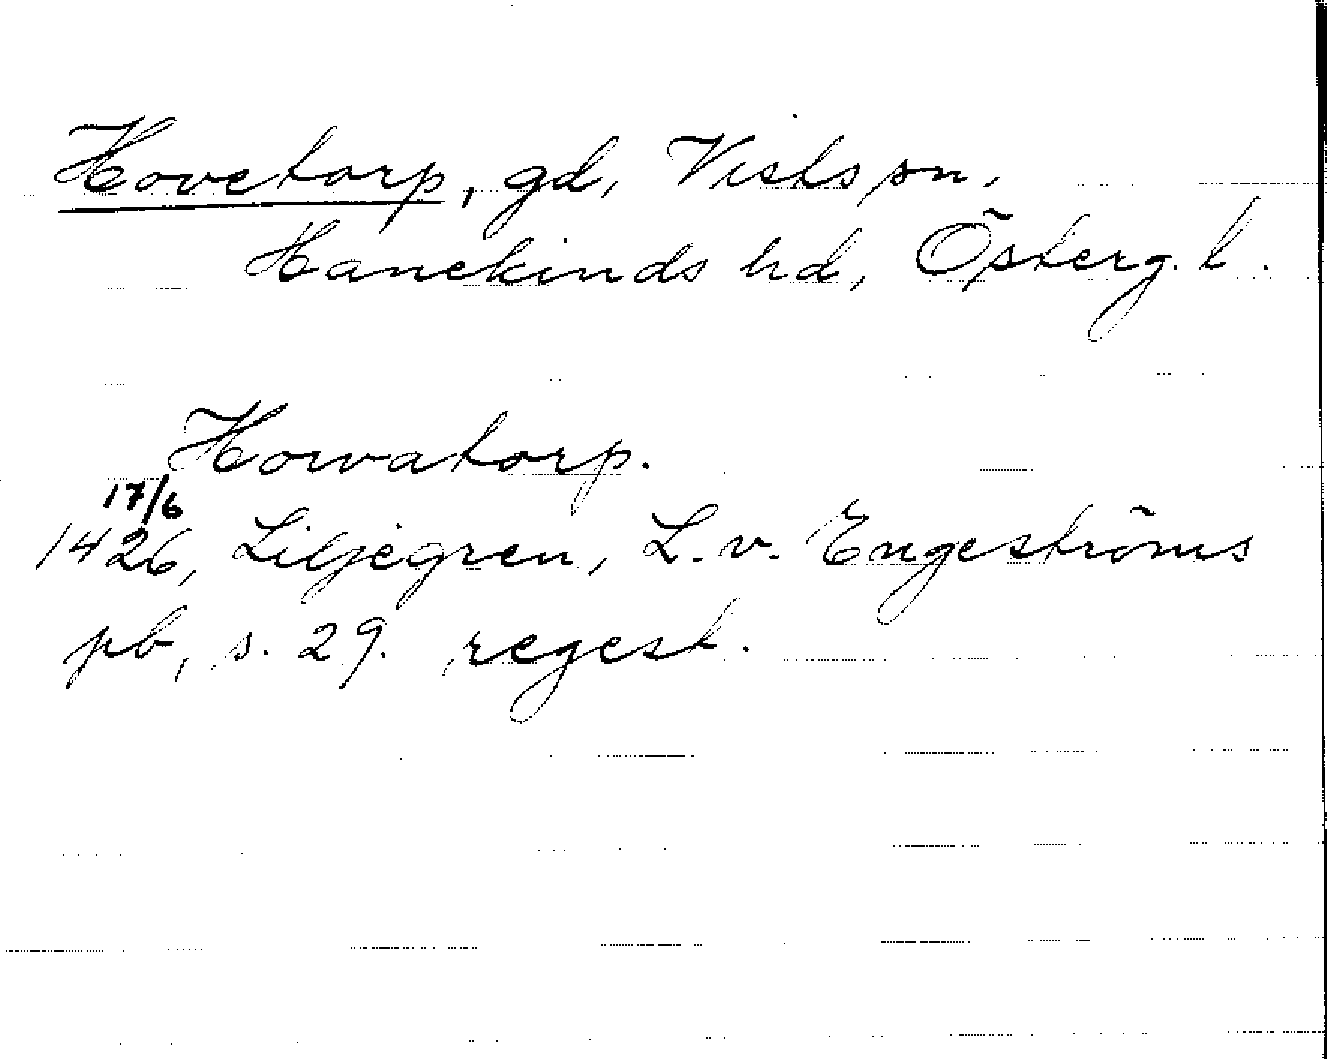 Hovetorp, gd, Vists sn,
Hanekinds hd, Österg. l.
Howatorp.
17/6
1426, Liljegren, L. v. Engeströms
pb, s. 29. regest.